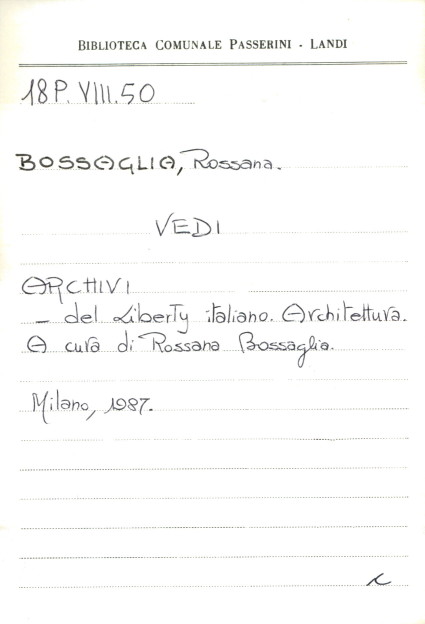 BIBLIOTECA COMUNALE PASSERINI - LANDI
18P.VIII.50
BOSSAGLIA, Rossana.
VEDI
ARCHIVI
— del Liberty italiano. Architettura.
A cura di Rossana Bossaglia.
Milano, 1987.